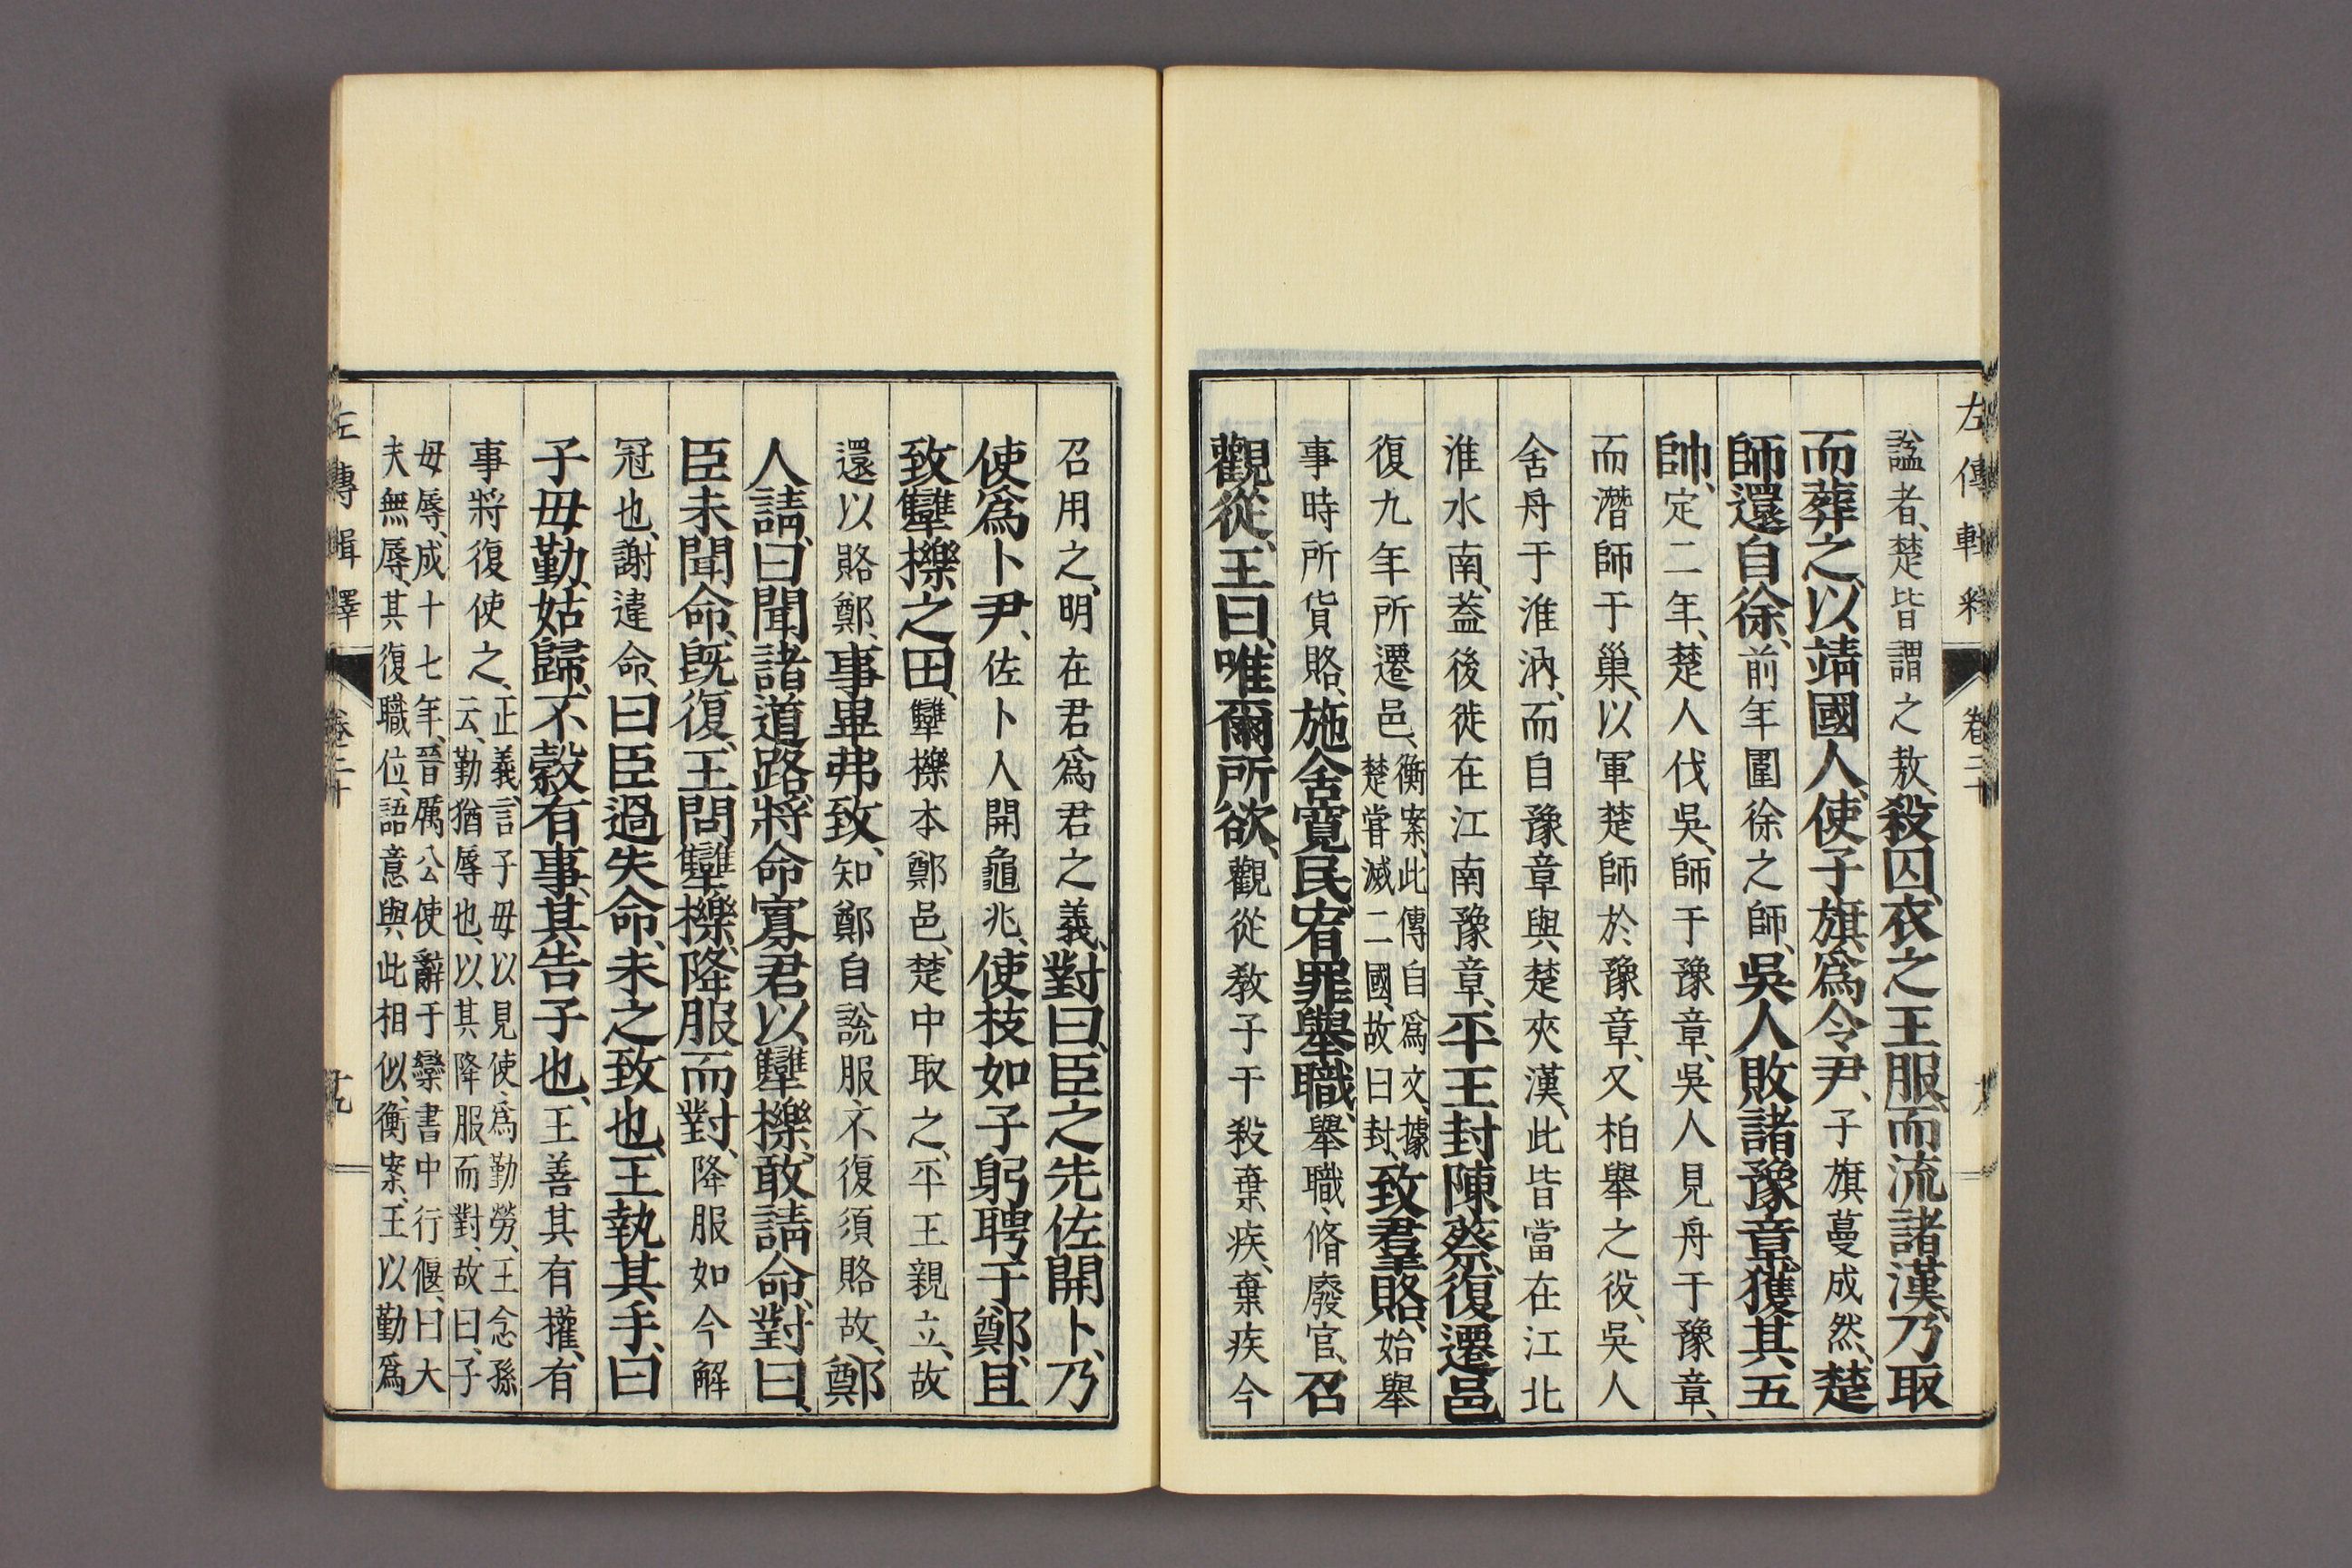 左傳輯釋 卷二十
諡者、楚皆謂之敖、殺囚、衣之王服、而流諸漢、乃取
而葬之、以靖國人、使子旗爲令尹、子旗蔓成然、楚
師還自徐、前年圍徐之師、吳人敗諸豫章、獲其五
帥、定二年、楚人伐吳、師于豫章、吳人見舟于豫章、
而潛師于巢、以軍楚師於豫章、又柏舉之役、吳人
舍舟于淮汭、而自豫章與楚夾漢、此皆當在江北
淮水南、蓋後徙在江南豫章、平王封陳蔡、復遷邑
復九年所遷邑、衡案、此傳自爲文、據楚嘗滅二國、故曰封、致羣賂、始舉
事時所貨賂、施舍寬民、宥罪舉職、舉職、脩廢官、召
觀從、王曰、唯爾所欲、觀從教子干殺棄疾、棄疾今
召用之、明在君爲君之義、對曰、臣之先佐開卜、乃
使爲卜尹、佐卜人開龜兆、使枝如子躬聘于鄭、且
致犨櫟之田、犨櫟本鄭邑、楚中取之、平王親立、故
還以賂鄭、事畢弗致、知鄭自說服、不復須賂故、鄭
人請曰、聞諸道路、將命寡君以犨櫟、敢請命、對曰、
臣未聞命、旣復、王問犨櫟、降服而對、降服如今解
冠也、謝違命、曰臣過失命、未之致也、王執其手、曰
子毋勤、姑歸、不穀有事、其告子也、王善其有權、有
事將復使之、正義、言子毋以見使爲勤勞、王念孫云、勤猶辱也、以其降服而對、故曰、子
毋辱、成十七年、晉厲公使辭于欒書中行偃、曰、大夫無辱、其復職位、語意與此相似、衡案、王以勤爲
左傳輯釋 卷二十 十九